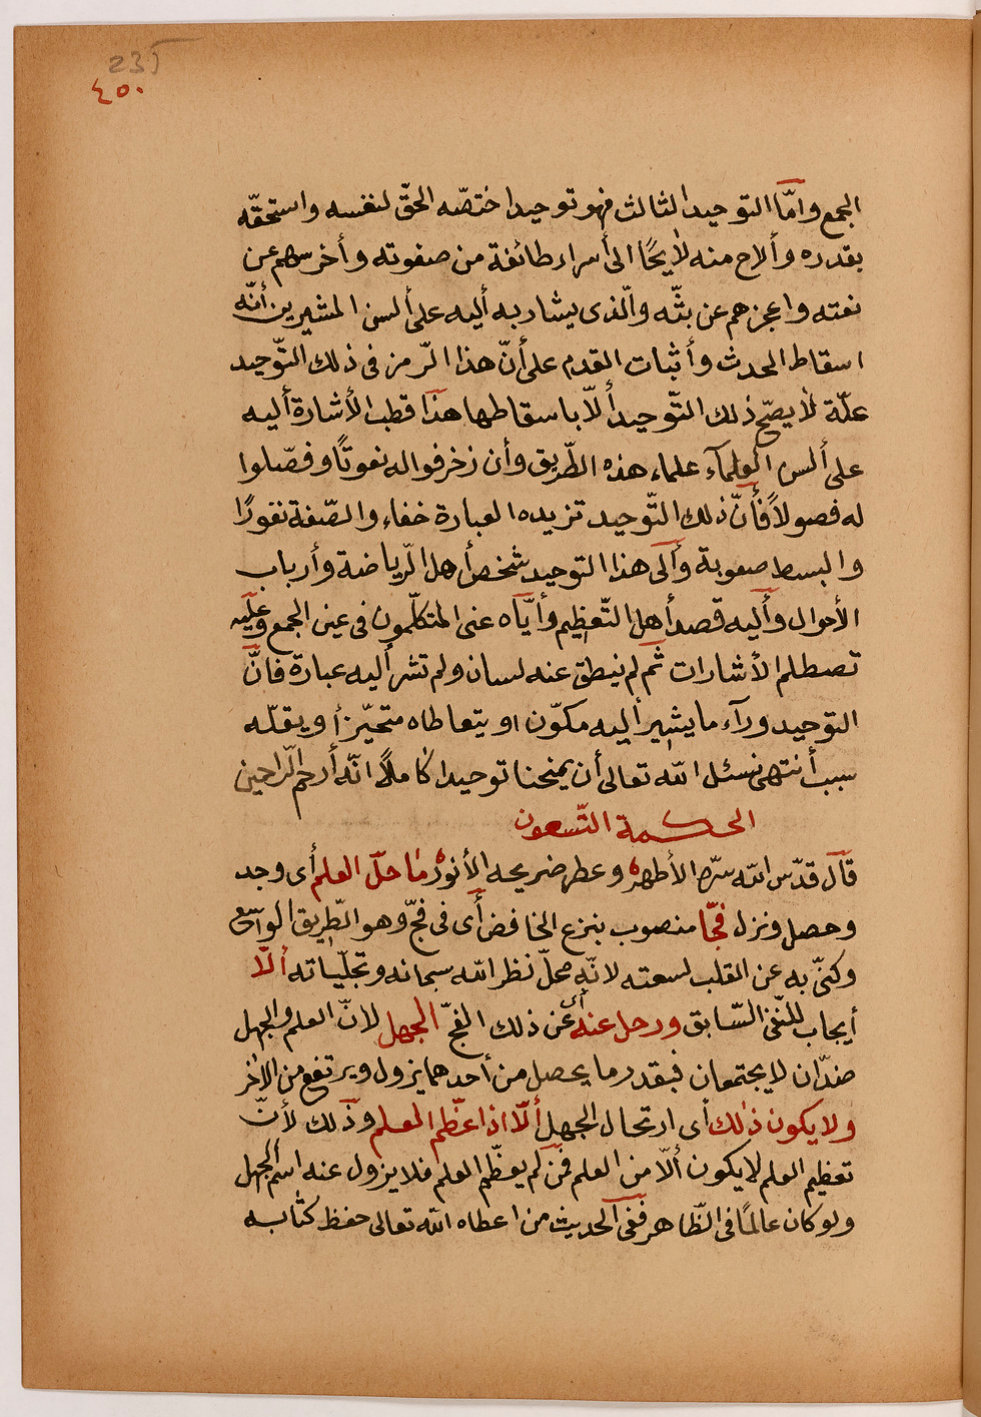 235
٤٥٠
الجمع وامّا التوحيد الثالث فهو توحيد اختصّه الحقّ لنفسه واستحقّه
بقدره وألاح منه لايحًا الى أسراء طائفة من صفوته وأخرسهم عن
نعته واعجزهم عن بثّه والّذى يشار به أليه على ألسن المشيرين أنّه
اسقاط الحدث وأثبات القدم على أنّ هذا الرّمز فى ذلك التّوحيد
علّة لا يصحّ ذلك التّوحيد ألّا باسقاطها هذا قطب الأشارة أليه
على ألسن العلمآء علماء هذه الطّريق وأن زخرفوا له نعوتًا وفصّلوا
له فصولاً فأنّ ذلك التّوحيد تزيده العبارة خفاء والصّفة نفورًا
والبسط صعوبة وألى هذا التوحيد شخص أهل الرّياضة وأرباب
الأحوال وأليه قصد أهل التّعظيم وأيّاه عنى المتكلّمون فى عين الجمع وعليه
تصطلم الأشارات ثمّ لم ينطق عنه لسان ولم تشر أليه عبارة فانّ
التوحيد ورآء ما يشير أليه مكوّن او يتعاطاه متحيّز أو يقلّه
سبب أنتهى نسئل الله تعالى أن يمنحنا توحيدا كاملاً انّه أرحم الرّاحمين
الحكمة التّسعون
قال قدّس الله سرّه الأطهر وعطر ضريحه الأنور ما حلّ العلم أى وجد
وحصل ونزل فجّا منصوب بنزع الخافض أى فى فجّ وهو الطّريق الواسع
وكنّى به عن القلب لسعته لانّه محلّ نظر الله سبحانه وتجلّياته ألّا
أيجاب للنّفى السّابق ورحل عنه أى عن ذلك الفجّ الجهل لانّ العلم والجهل
ضدّان لا يجتمعان فبقدر ما يحصل من أحدهما يزول ويرتفع من الآخر
ولا يكون ذلك أى ارتحال الجهل ألّا اذا عظّم العلم وذلك لأنّ
تعظيم العلم لا يكون ألّا من العلم فمن لم يعظّم العلم فلا يزول عنه اسم الجهل
ولو كان عالمًا فى الظّاهر ففى الحديث من اعطاه الله تعالى حفظ كتابه